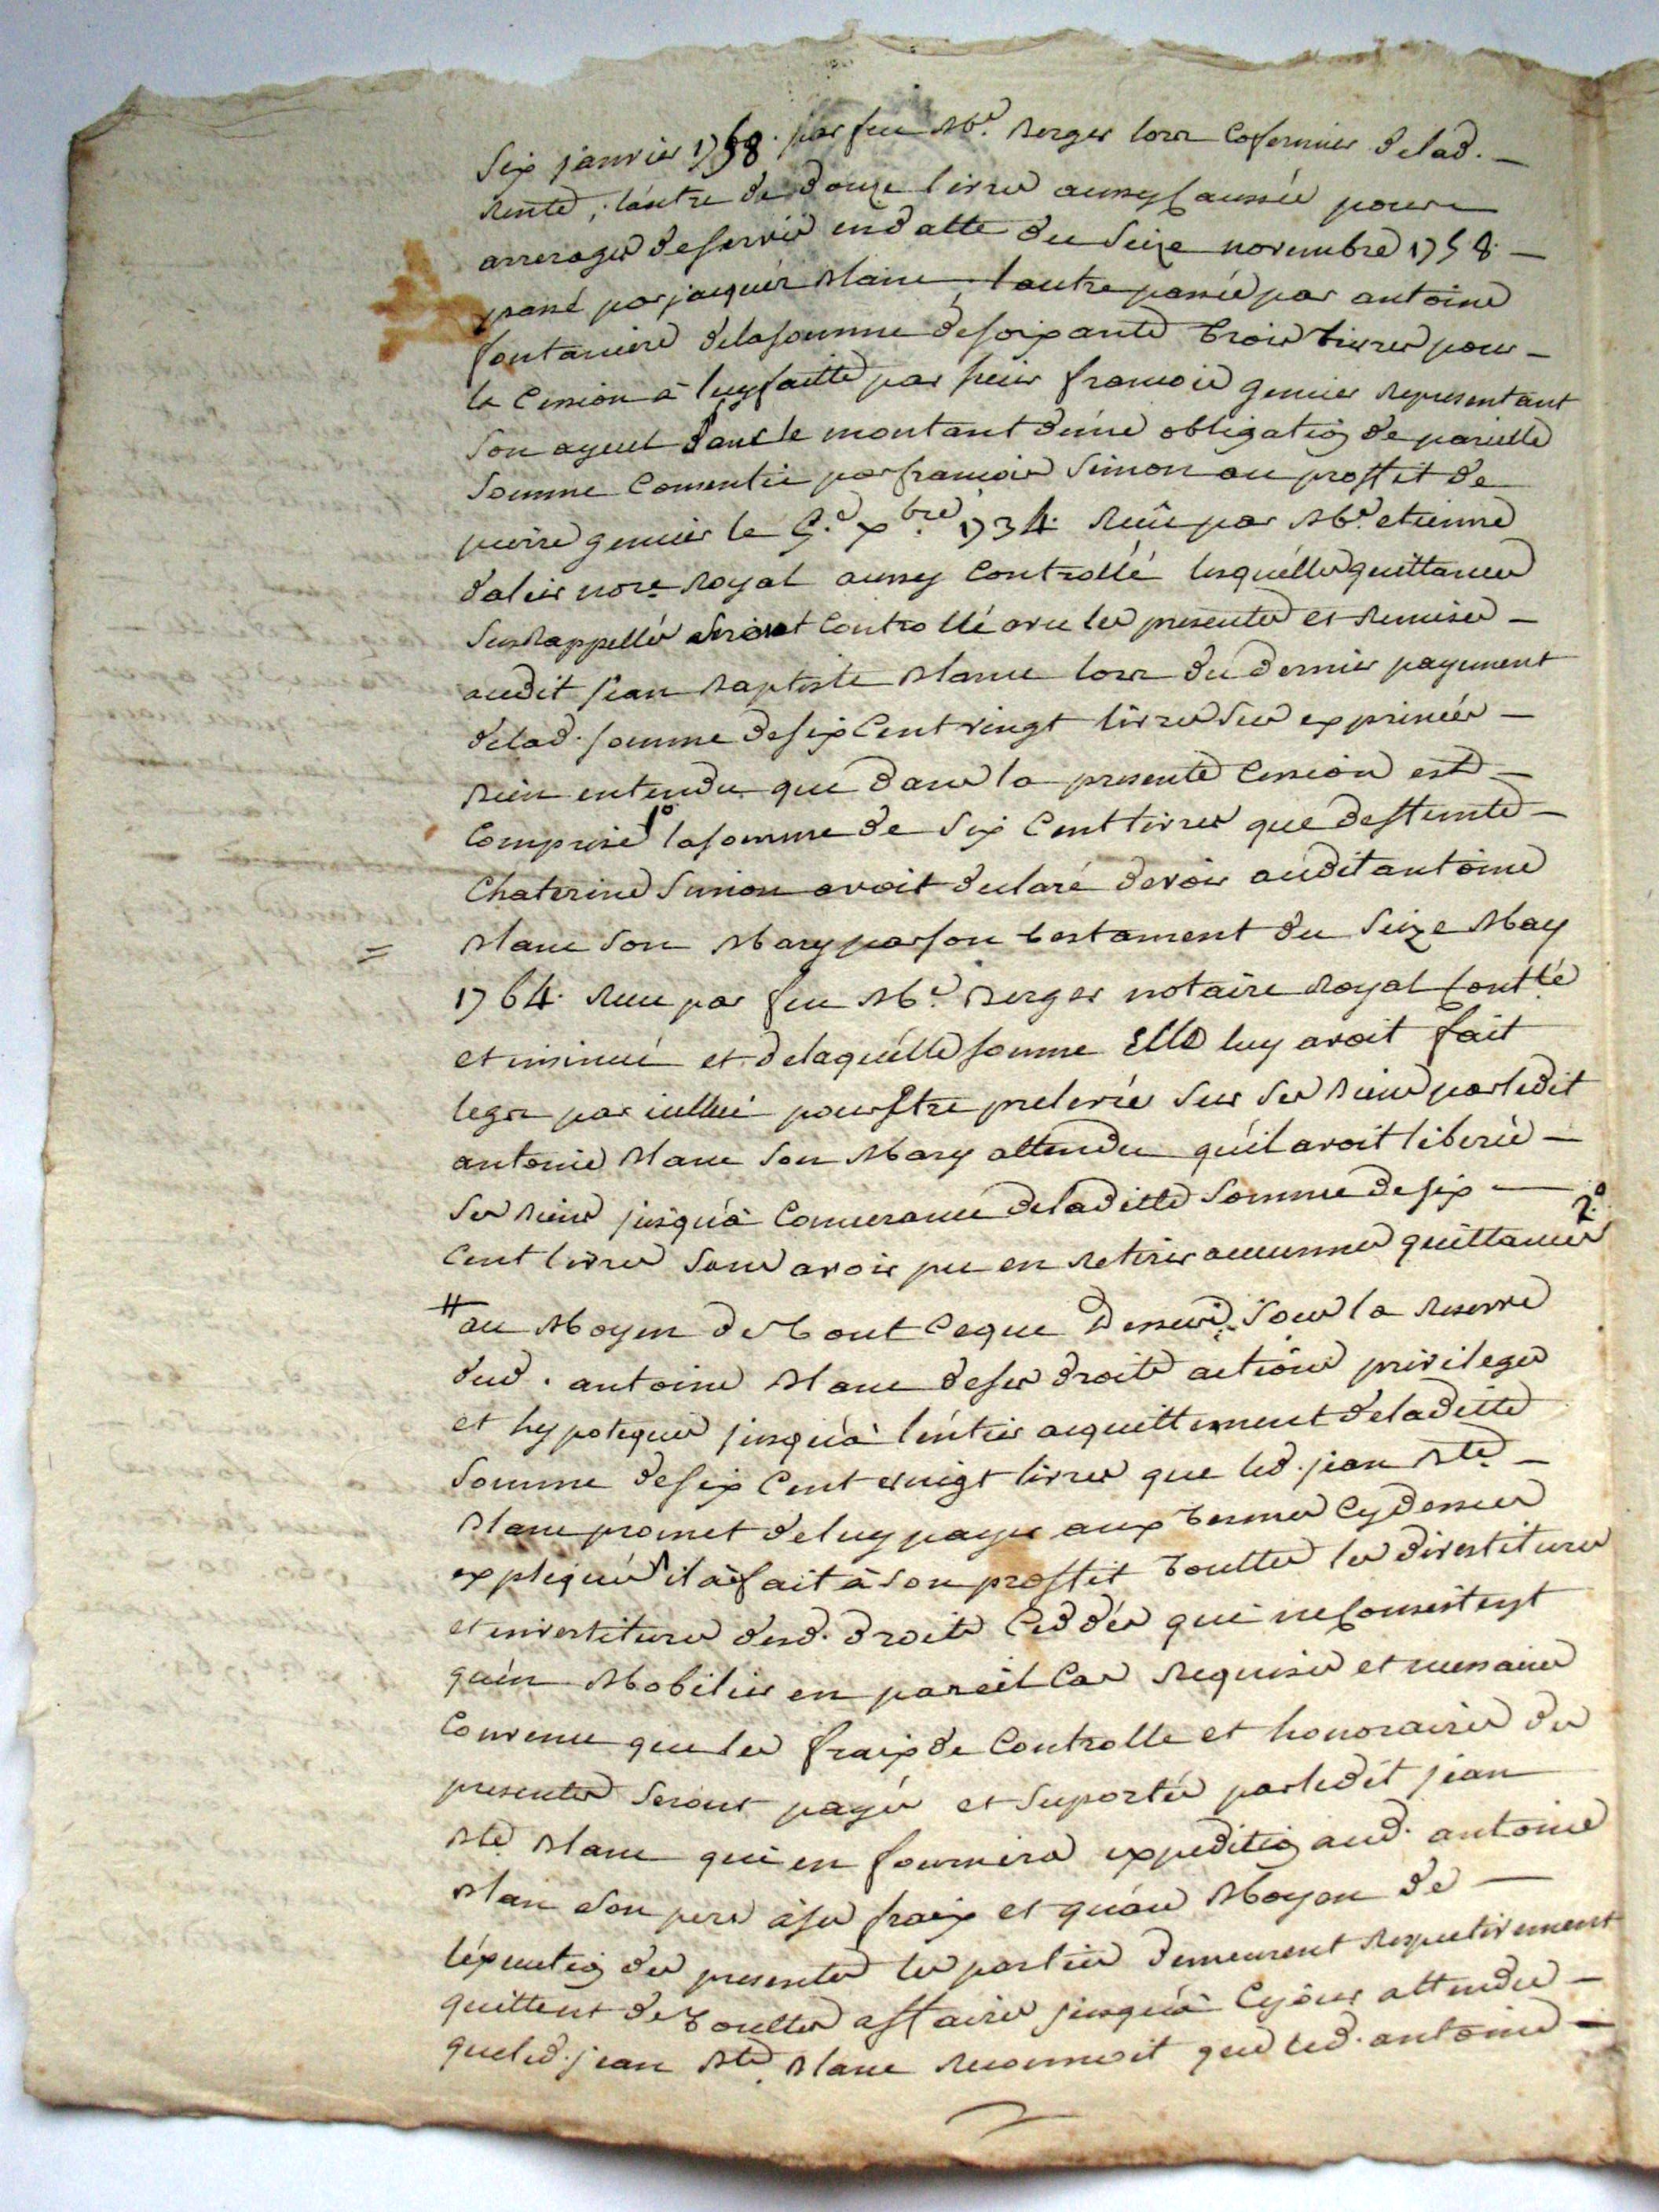 six janvier 1758. par feu Me. Berger lors cofermier de lad. —
Rente; l'autre de douze livres aussy causée pour
arrerages de servis en datte du seize novembre 1758 —
passé par jacques Blanc, l'autre passée par antoine
fontaniere de la somme de soixante trois livres pour —
la Cession à luy faitte par sieur francois genier Representant
son ayeul dans le montant d'une obligatio de pareille
somme Consentie par francois Simon au proffit de
pierre genier le 5.e xbre. 1734. Reçüe par Me. etienne
nore. Royal aussy Controllé lesquelles quittances
susRappellés seront Controllé avec les presentes et Remises —
audit jean Baptiste Blanc lors du dernier payement
de lad. somme de six Cent vingt livres sus exprimée —
Bien entendu que dans la presente Cession est —
Comprise 1° la somme de six Cent livres que deffunte —
Chaterine Simon avoit declaré devoir audit antoine
= Blanc son Mary par son testament du seize May
1764. Reçu par feu Me. Berger notaire Royal Contlé
et insinué et de laquelle somme Elle luy avoit fait
legs par icelluy pour Etre prelevée sur ses Biens par ledit
antoine Blanc son Mary attendu qu'il avoit liberé —
ses Biens jusqu'à Concurance de laditte somme de six —
Cent livres sans avoir pu en Retirer aucunnes quittances 2.°
# au Moyen de tout Ceque Dessus, sous la Reserve
dud. antoine Blanc de ses droits actions privileges
et hypoteques jusqu'à l'entier acquittement de laditte
somme de six Cent vingt livres que led. jean Bte. —
Blanc promet de luy payer aux termes Cy dessus
expliqués il a fait à son proffit touttes les divestitures
et investitures desd. droits Ceddés qui ne Consistent
qu'en Mobilier en pareil Cas Requises et necessaires
Convenu que les fraix de Controlle et honoraires des
presentes seront payés et suportés par ledit jean
Bte. Blanc qui en fournira expeditio aud. antoine
Blan son pere à ses fraix et qu'au Moyen de —
l'executio des presentes les parties demeurent Respectivement
quittent de touttes affaires jusqu'à Cejour attendu —
que led. jean Bte. Blanc Reconnoit que led. antoine —